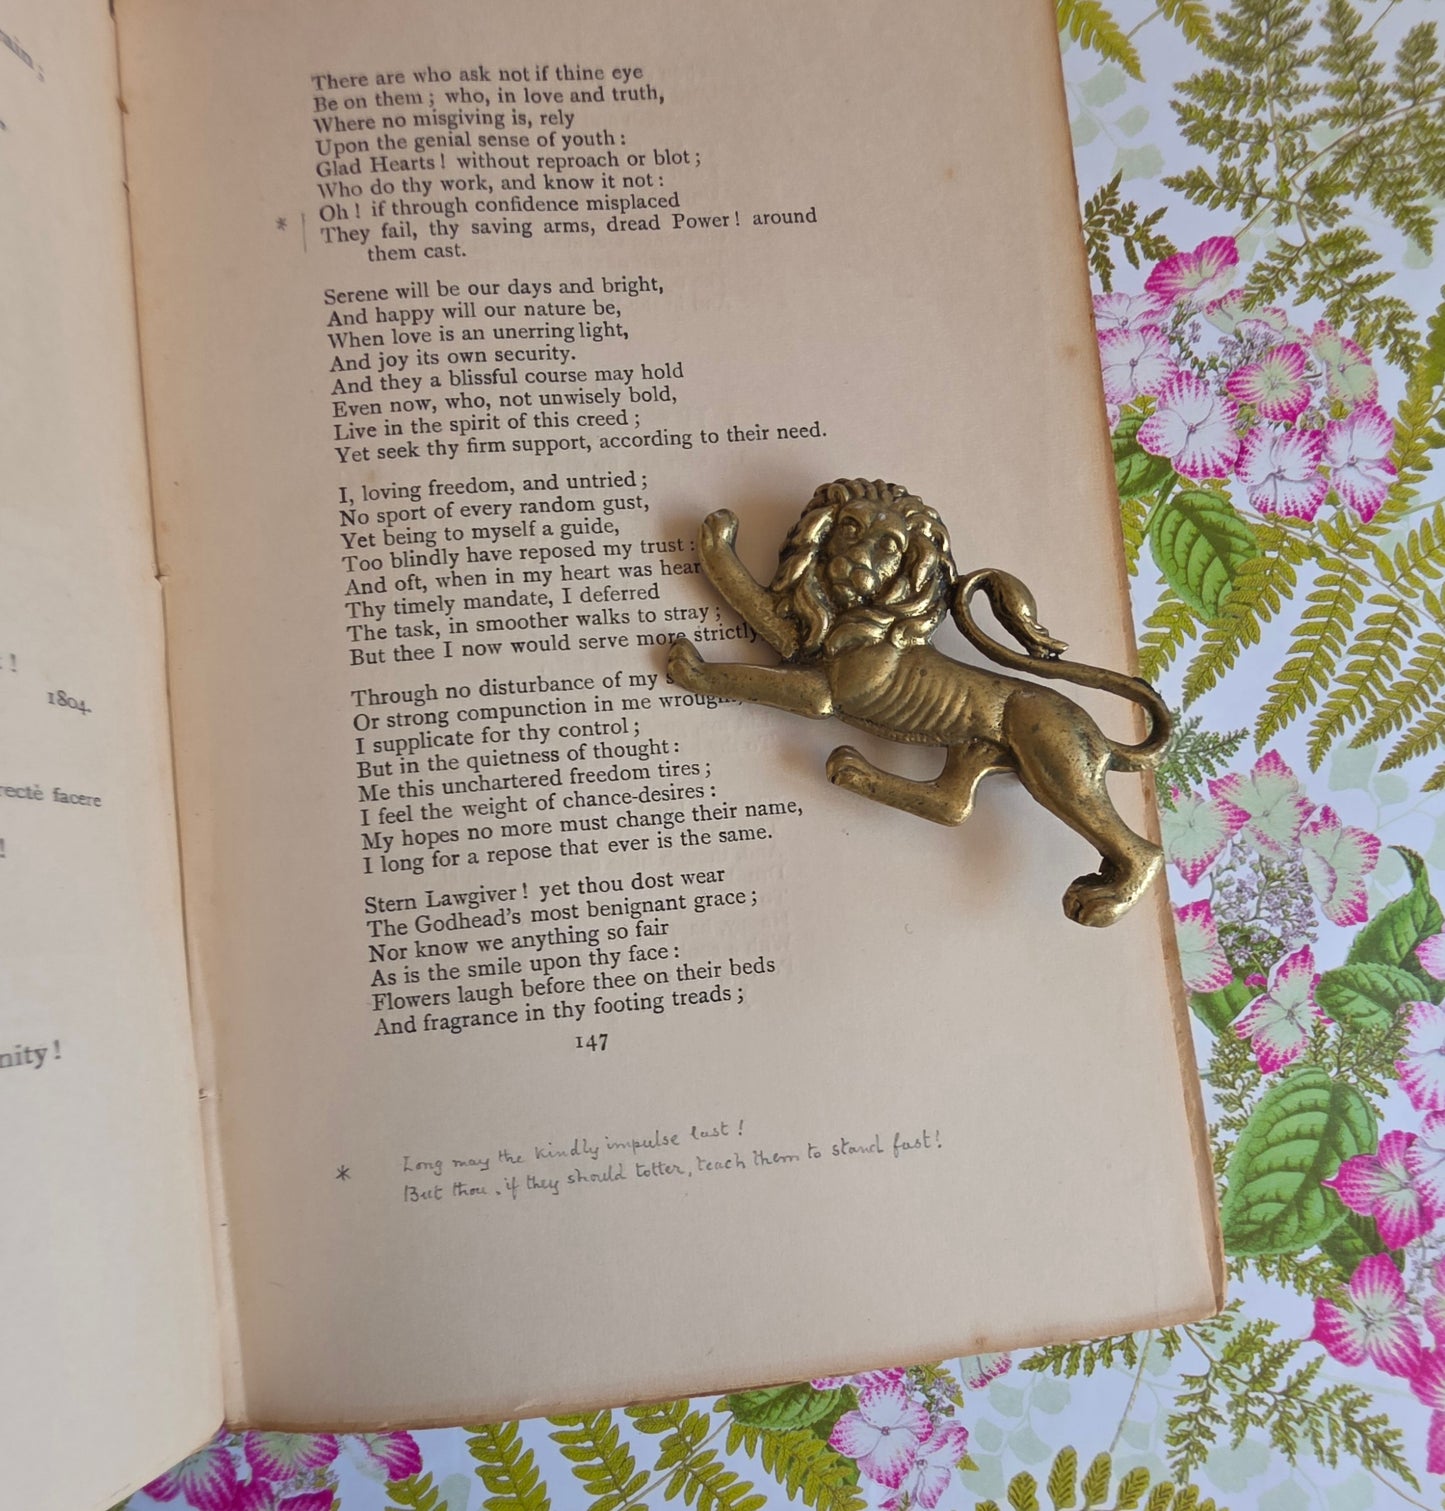 ain ;
t !
1804.
recte facere
!
nity !
There are who ask not if thine eye
Be on them ; who, in love and truth,
Where no misgiving is, rely
Upon the genial sense of youth :
Glad Hearts ! without reproach or blot ;
Who do thy work, and know it not :
Oh ! if through confidence misplaced
* They fail, thy saving arms, dread Power ! around
them cast.
Serene will be our days and bright,
And happy will our nature be,
When love is an unerring light,
And joy its own security.
And they a blissful course may hold
Even now, who, not unwisely bold,
Live in the spirit of this creed ;
Yet seek thy firm support, according to their need.
I, loving freedom, and untried ;
No sport of every random gust,
Yet being to myself a guide,
Too blindly have reposed my trust :
And oft, when in my heart was hear
Thy timely mandate, I deferred
The task, in smoother walks to stray ;
But thee I now would serve more strictly
Through no disturbance of my s
Or strong compunction in me wrough
I supplicate for thy control ;
But in the quietness of thought :
Me this unchartered freedom tires ;
I feel the weight of chance-desires :
My hopes no more must change their name,
I long for a repose that ever is the same.
Stern Lawgiver ! yet thou dost wear
The Godhead's most benignant grace ;
Nor know we anything so fair
As is the smile upon thy face :
Flowers laugh before thee on their beds
And fragrance in thy footing treads ;
147
Long may the kindly impulse last !
* But thou, if they should totter, teach them to stand fast !